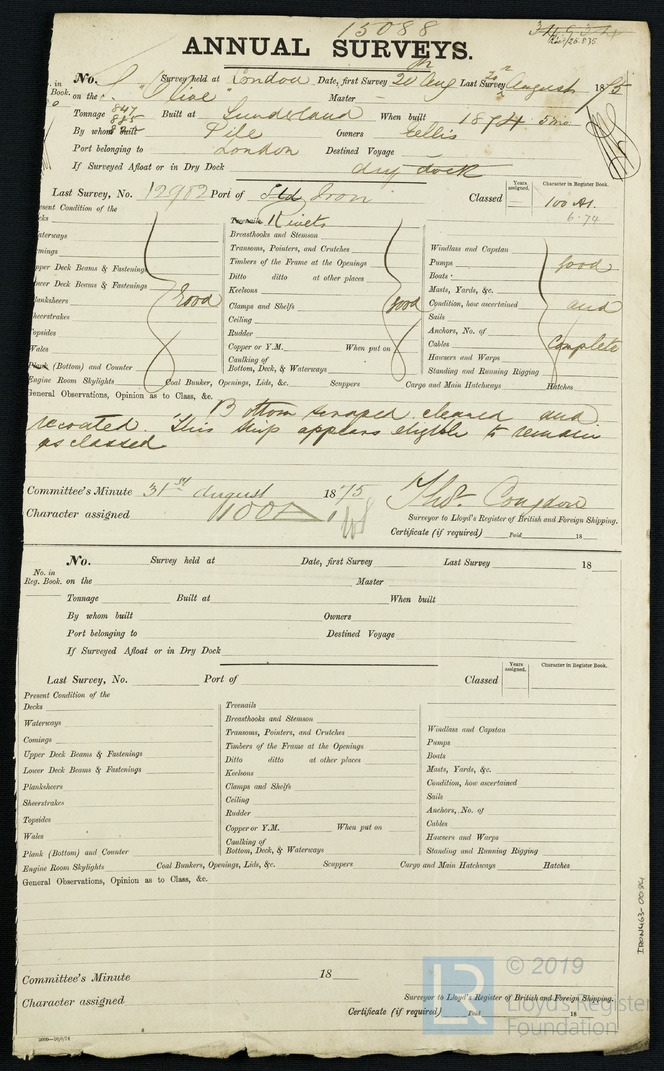 15088
ANNUAL SURVEYS.
No. Survey held at London Date, first Survey 20th Aug Last Survey August 1875
in Book. on the "Olive" Master
Tonnage 847 885 Built at Sunderland When built 1874 5mo
By whom built Pile Owners Gellis
Port belonging to London Destined Voyage
If Surveyed Afloat or in Dry Dock dry dock
Last Survey, No. 12902 Port of Std Iron Classed
Years assigned. Character in Register Book.
100 A1.
6.74
Present Condition of the
Decks
Waterways
Comings
Upper Deck Beams & Fastenings
Lower Deck Beams & Fastenings
Planksheers
Sheerstrakes
Topsides
Wales
Plank (Bottom) and Counter
Good
Treenails Rivets
Breasthooks and Stemson
Transoms, Pointers, and Crutches
Timbers of the Frame at the Openings
Ditto ditto at other places
Keelsons
Clamps and Shelfs
Ceiling
Rudder
Copper or Y.M. When put on
Caulking of
Bottom, Deck, & Waterways
good
Windlass and Capstan
Pumps
Boats
Masts, Yards, &c.
Condition, how ascertained
Sails
Anchors, No. of
Cables
Hawsers and Warps
Standing and Running Rigging
good
and
Complete
Engine Room Skylights Coal Bunker, Openings, Lids, &c. Scuppers Cargo and Main Hatchways Hatches
General Observations, Opinion as to Class, &c.
Bottom scraped cleaned and
recoated. This ship appears eligible to remain
as classed
Committee's Minute 31st August 1875 Thos. Congdon
Character assigned 100A1 Surveyor to Lloyd's Register of British and Foreign Shipping.
Certificate (if required) Paid 18
No. Survey held at Date, first Survey Last Survey 18
No. in
Reg. Book. on the Master
Tonnage Built at When built
By whom built Owners
Port belonging to Destined Voyage
If Surveyed Afloat or in Dry Dock
Last Survey, No. Port of Classed
Years assigned. Character in Register Book.
Present Condition of the
Decks
Waterways
Comings
Upper Deck Beams & Fastenings
Lower Deck Beams & Fastenings
Planksheers
Sheerstrakes
Topsides
Wales
Plank (Bottom) and Counter
Treenails
Breasthooks and Stemson
Transoms, Pointers, and Crutches
Timbers of the Frame at the Openings
Ditto ditto at other places
Keelsons
Clamps and Shelfs
Ceiling
Rudder
Copper or Y.M. When put on
Caulking of
Bottom, Deck, & Waterways
Windlass and Capstan
Pumps
Boats
Masts, Yards, &c.
Condition, how ascertained
Sails
Anchors, No. of
Cables
Hawsers and Warps
Standing and Running Rigging
Engine Room Skylights Coal Bunkers, Openings, Lids, &c. Scuppers Cargo and Main Hatchways Hatches
General Observations, Opinion as to Class, &c.
Committee's Minute 18
Character assigned Surveyor to Lloyd's Register of British and Foreign Shipping.
Certificate (if required) Paid 18
IRON463-0094
LR © 2019
Lloyd's Register
Foundation